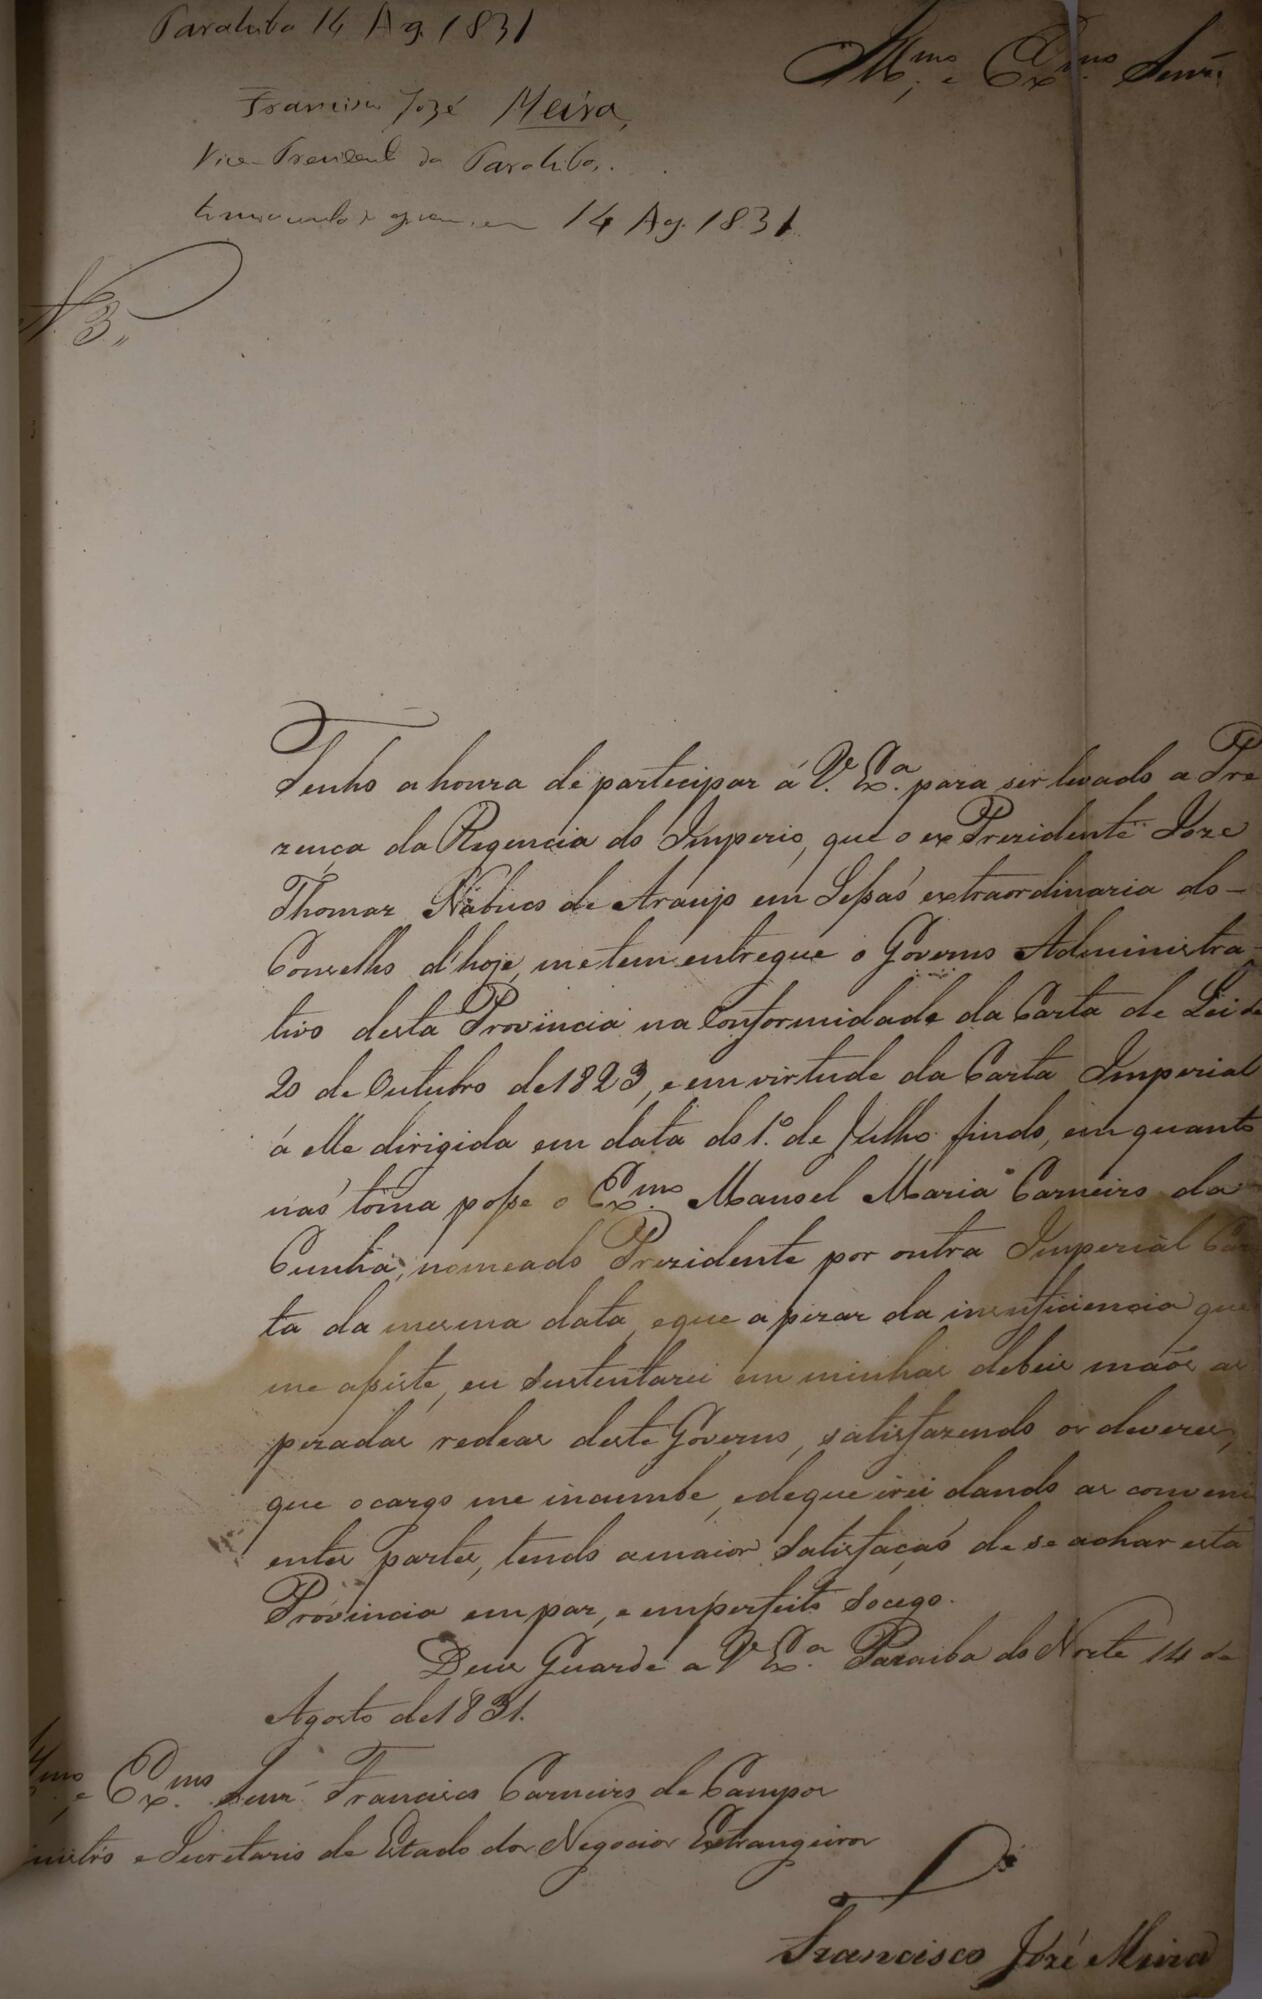 Parahiba 14 Ag. 1831
Illmo. e Exmo. Senr.
Francisco Jozé Meira,
Vice-Presidente da Parahiba.
14 Ag. 1831
N 3,,
Tenho a honra de participar á V. Exa. para ser levado a Pre
zença da Regencia do Imperio, que o ex Prezidente Joze
Thomaz Nabuco de Araujo em Sessaó extraordinaria do
Conselho d'hoje, me tem entregue o Governo Administra-
tivo desta Provincia na Conformidade da Carta de Lei de
20 de Outubro de 1823, e em virtude da Carta Imperial
á elle dirigida em data do 1º. de Julho findo, em quanto
naó toma posse o Exmo. Manoel Maria Carneiro da
Cunha, nomeado Prezidente por outra Imperial Car
ta da mesma data, e que a pezar da insuficiencia que
me assiste, eu sustentarei em minhas debeis mãos as
pezadas redeas deste Governo, satisfazendo os deveres,
que o cargo me incumbe, e de que irei dando as conveni
entes partes, tendo a maior satisfaçaó de se achar esta
Provincia em paz, e em perfeito Socego.
Deos Guarde a V Exa. Paraiba do Norte 14 de
Agosto de 1831.
Illmo. e Exmo. Senr. Francisco Carneiro de Campos
nistro e Secretario de Estado dos Negocios Extrangeiros
Francisco José Meira